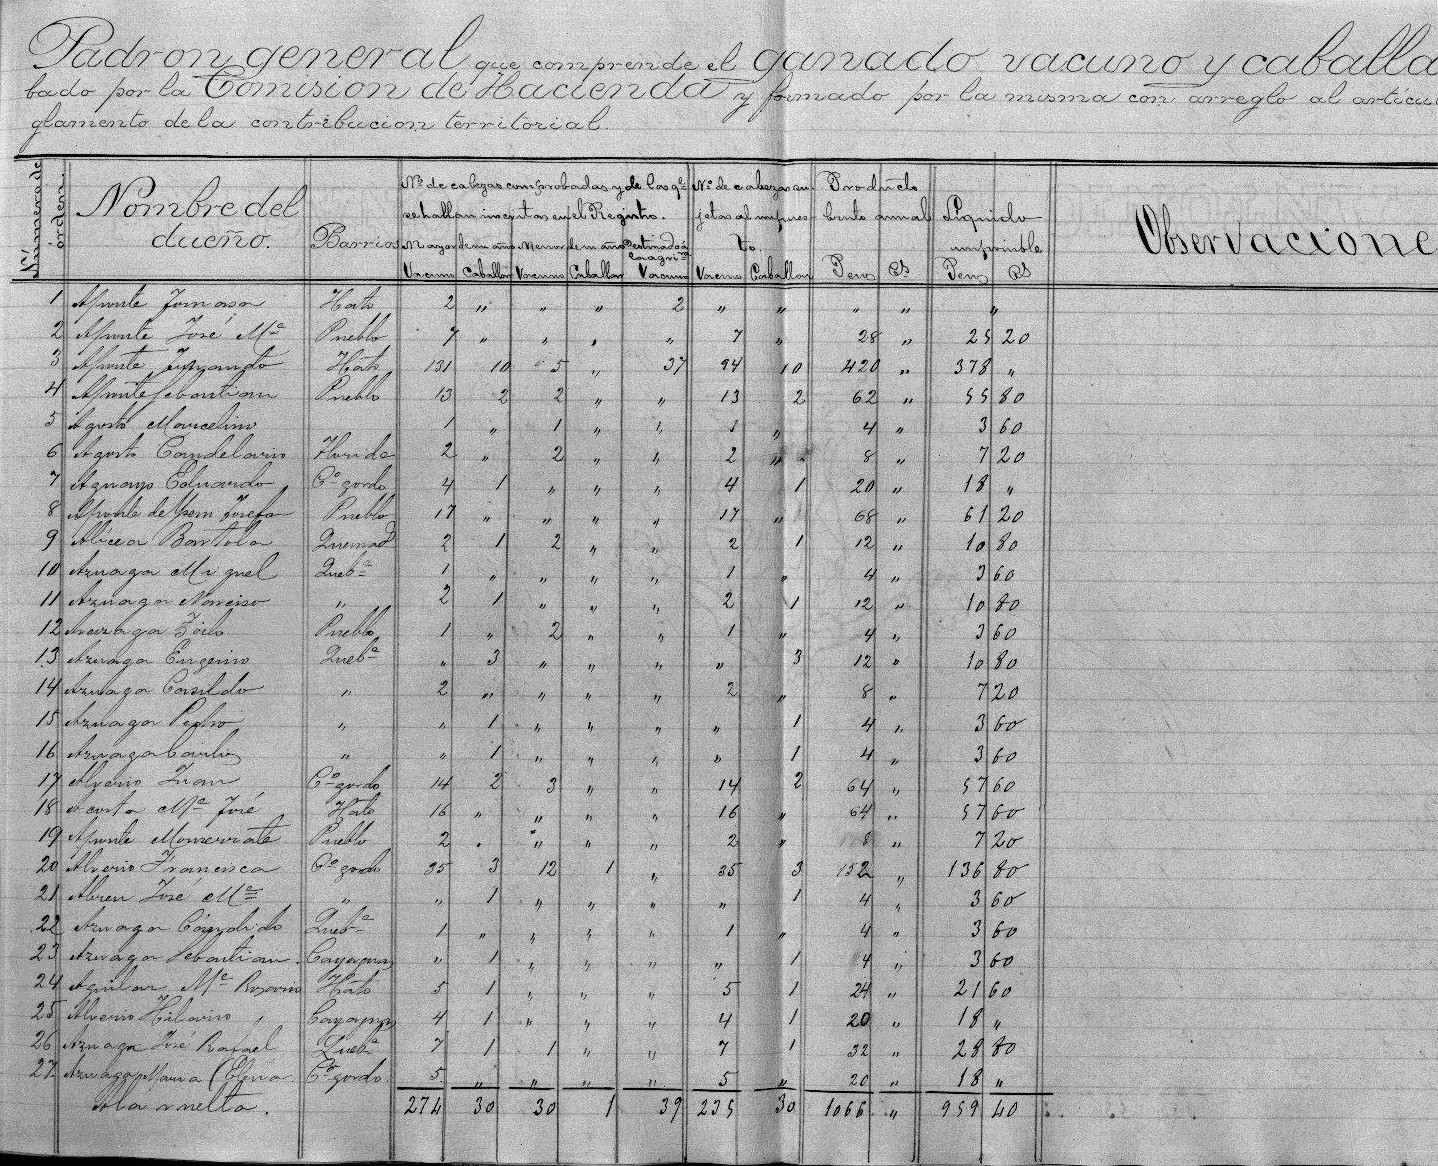 Padron general que comprende el ganado vacuno y caballa
bado por la Comision de Hacienda y formado por la misma con arreglo al artícu
glamento de la contribucion territorial.
Numero de orden. Nombre del dueño. Barrios Nº de cabezas comprobadas y de las qe se hallan inscritas en el Registro. Nº de cabezas sujetas al impuesto. Producto bruto anual Líquido imponible Observacione
Mayor de un año Menor de un año Destinado á la agrira
Vacuno Caballar Vacuno Caballar Vacuno Vacuno Caballar Pesos Cs Pesos Cs
1 Aponte Tomasa Hato 2 " " " 2 " " " " "
2 Aponte José Mª Pueblo 7 " " " " 7 " 28 " 25 20
3 Aponte Fernando Hato 131 10 5 " 37 94 10 420 " 378 "
4 Aponte Sebastian Pueblo 13 2 2 " " 13 2 62 " 55 80
5 Agosto Marcelino 1 " 1 " " 1 " 4 " 3 60
6 Agosto Candelario Florida 2 " 2 " " 2 " 8 " 7 20
7 Aguayo Eduardo Co gordo 4 1 " " " 4 1 20 " 18 "
8 Aponte de Josefa Pueblo 17 " " " " 17 " 68 " 61 20
9 Alicea Bartola Quemado 2 1 2 " " 2 1 12 " 10 80
10 Arzuaga Miguel Quebª 1 " " " " 1 " 4 " 3 60
11 Arzuaga Narciso " 2 1 " " " 2 1 12 " 10 80
12 Arzuaga Zoilo Pueblo 1 " 2 " " 1 " 4 " 3 60
13 Arzuaga Eugenio Quebª " 3 " " " " 3 12 " 10 80
14 Arzuaga Casildo " 2 " " " " 2 " 8 " 7 20
15 Arzuaga Pedro " " 1 " " " " 1 4 " 3 60
16 Arzuaga Carlos " " 1 " " " " 1 4 " 3 60
17 Alverio Juan Co gordo 14 2 3 " " 14 2 64 " 57 60
18 Acosta Mª José Hato 16 " " " " 16 " 64 " 57 60
19 Aponte Monserrate Pueblo 2 . " " " 2 " 8 " 7 20
20 Alverio Francisca Co gordo 35 3 12 1 " 35 3 152 " 136 80
21 Abreu José Mª " " 1 " " " " 1 4 " 3 60
22 Arzuaga Cándido Quebª 1 " " " " 1 " 4 " 3 60
23 Arzuaga Sebastian Cayaguas " 1 " " " " 1 4 " 3 60
24 Aguilar Mª Rosario Hato 5 1 " " " 5 1 24 " 21 60
25 Alverio Hilario Cayaguas 4 1 " " " 4 1 20 " 18 "
26 Arzuaga José Rafael Quebª 7 1 1 " " 7 1 32 " 28 80
27 Arzuaga Maria Co gordo 5 " " " " 5 " 20 " 18 "
A la vuelta. 274 30 30 1 39 235 30 1066 " 959 40